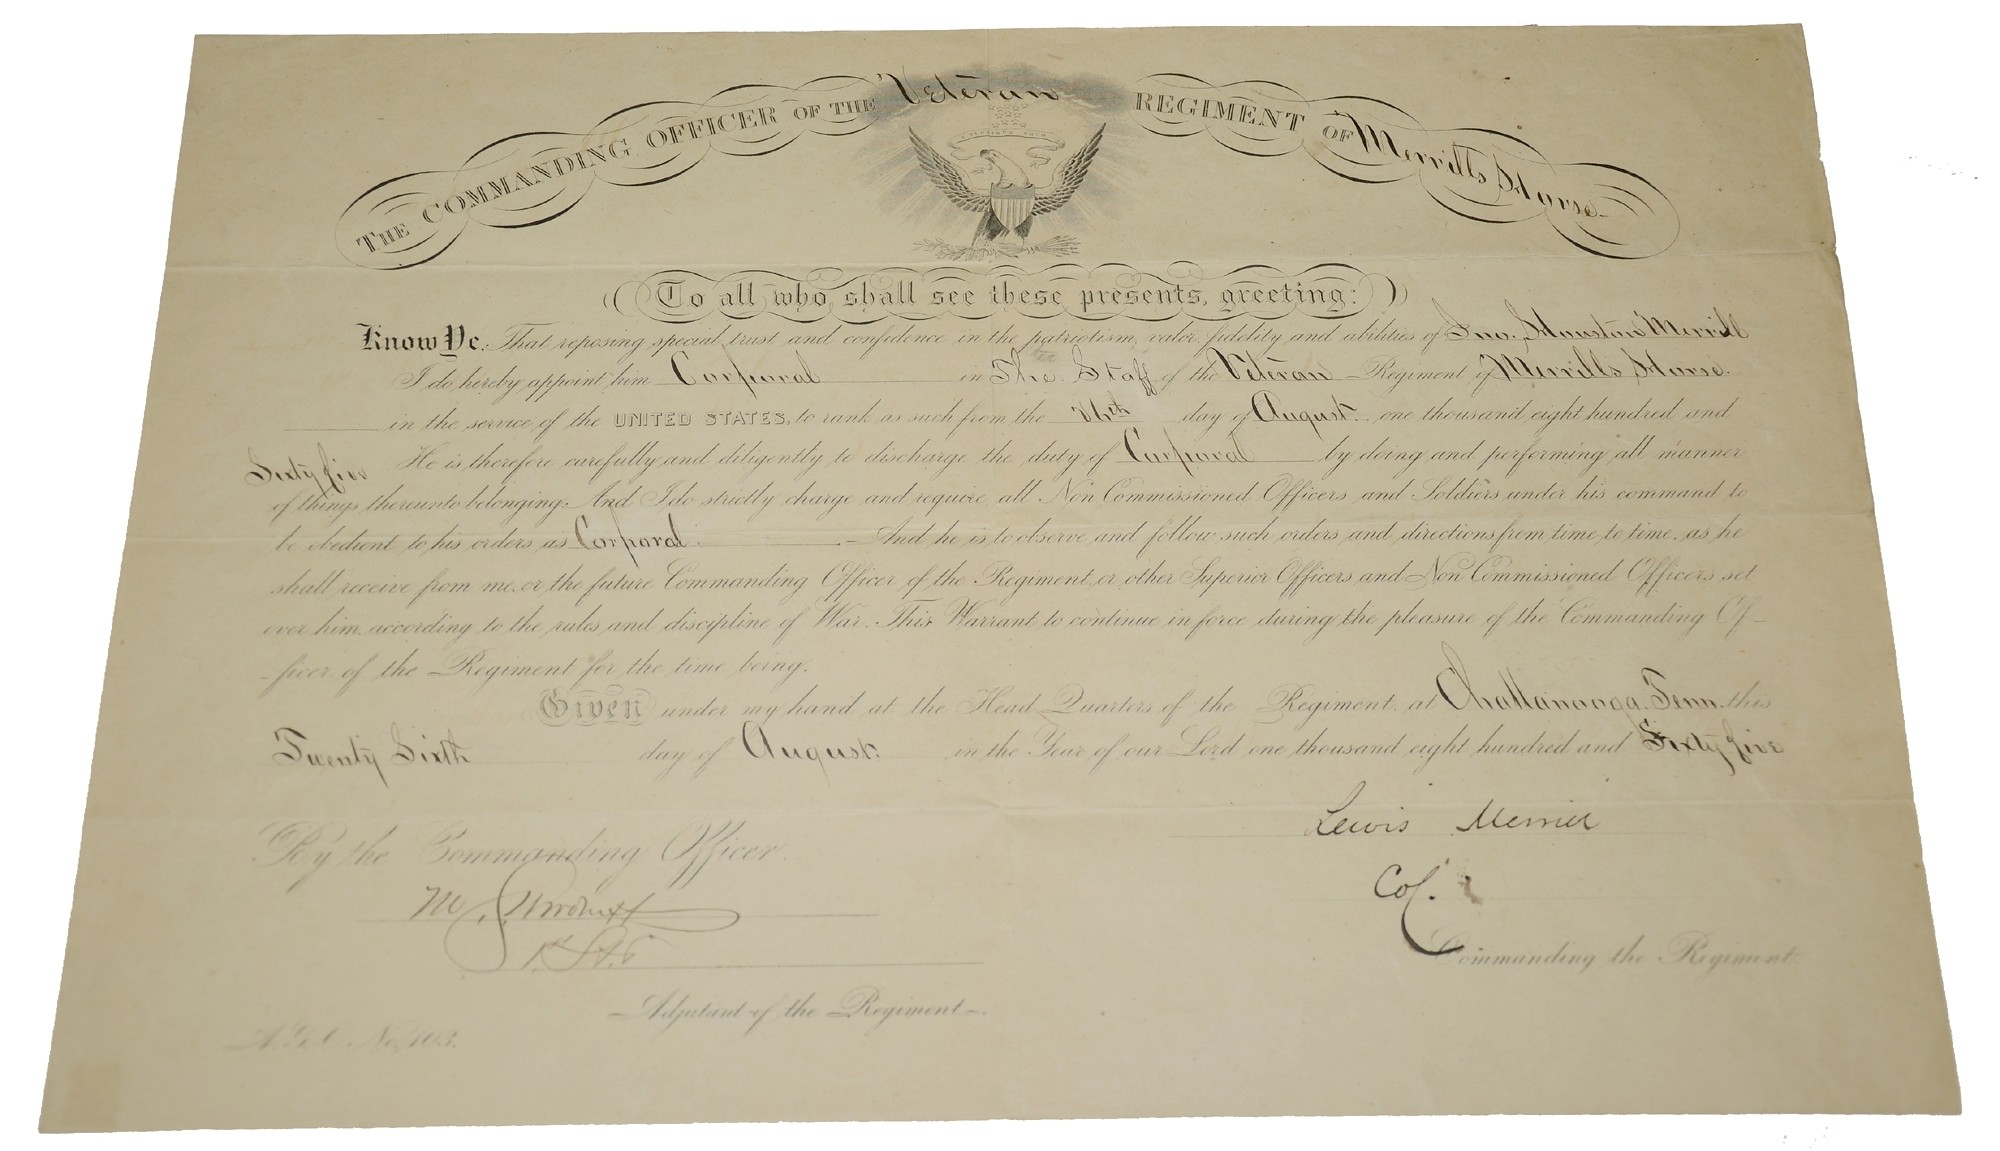 THE COMMANDING OFFICER OF THE Veteran REGIMENT OF Merrills Horse
To all who shall see these presents, greeting:
Know Ye, That reposing special trust and confidence in the patriotism, valor, fidelity and abilities of Jno. Houston Merrill
I do hereby appoint him Corporal in The Staff of the Veteran Regiment of Merrills Horse.
in the service of the UNITED STATES, to rank as such from the 26th day of August one thousand eight hundred and
Sixty five He is therefore carefully and diligently to discharge the duty of Corporal by doing and performing all manner
of things thereunto belonging. And I do strictly charge and require all Non Commissioned Officers and Soldiers under his command to
be obedient to his orders as Corporal. And he is to observe and follow such orders and directions from time to time, as he
shall receive from me, or the future Commanding Officer of the Regiment or other Superior Officers and Non Commissioned Officers set
over him, according to the rules and discipline of War. This Warrant to continue in force during the pleasure of the Commanding Of-
-ficer of the Regiment for the time being.
Given under my hand at the Head Quarters of the Regiment, at Chattanooga, Tenn. this
Twenty Sixth day of August. in the Year of our Lord one thousand eight hundred and Sixty five
Lewis Merrill
By the Commanding Officer.
Col.
Commanding the Regiment.
Adjutant of the Regiment.
A.G.O. No. 103.